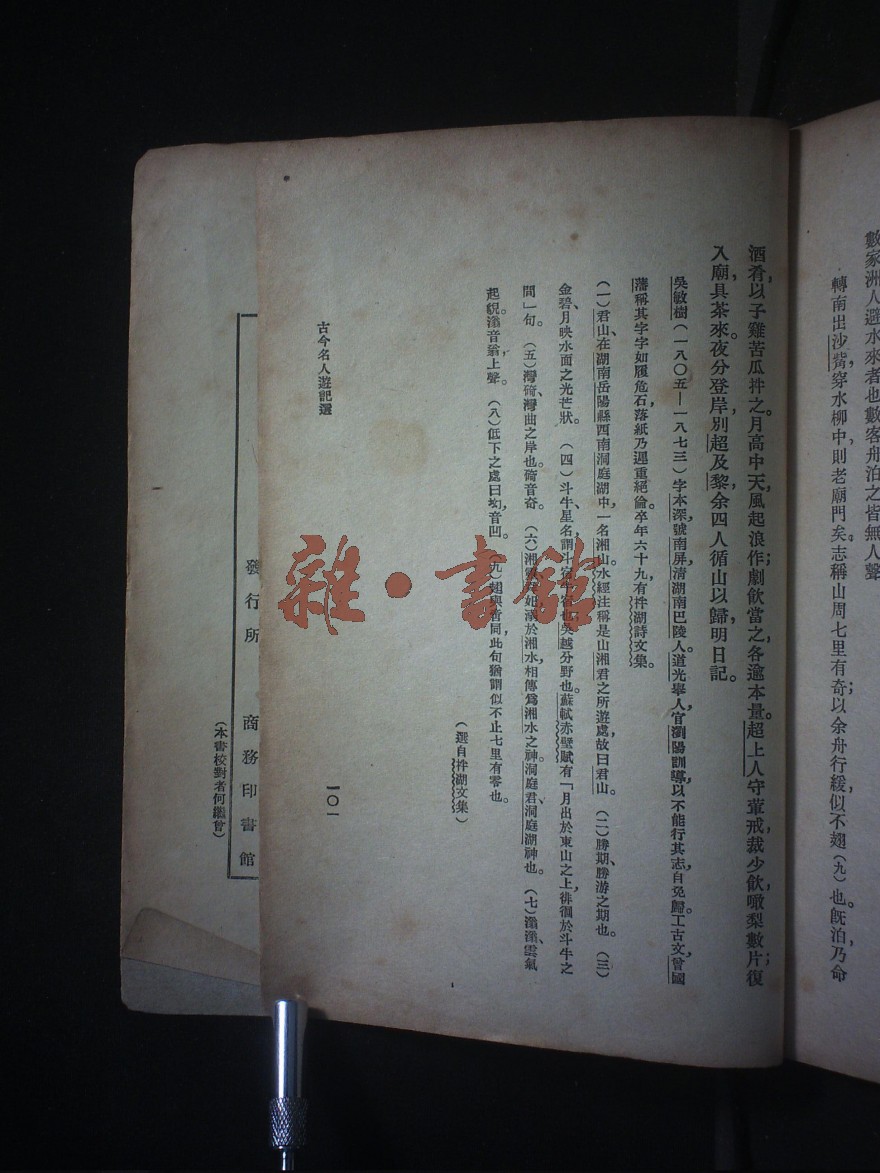 數家洲人避水來者也數客舟泊之皆無人聲
轉南出沙觜，穿水柳中，則老廟門矣。志稱山周七里有奇；以余舟行緩，似不翅（九）也。旣泊，乃命
酒肴，以子雞苦瓜拌之。月高中天，風起浪作，劇飲當之，各逾本量。超上人守葷戒，裁少飲，噉梨數片；復
入廟，具茶來。夜分登岸，別超及黎，余四人循山以歸。明日記。
吳敏樹（一八〇五—一八七三）字本深，號南屏，清湖南巴陵人。道光舉人，官瀏陽訓導，以不能行其志自免歸。工古文，曾國
藩稱其字字如履危石，落紙乃遲重絕倫。卒年六十九，有拌湖詩文集。
（一）君山、在湖南岳陽縣西南洞庭湖中，一名湘山。水經注稱是山湘君之所遊處，故曰君山。（二）勝期、勝游之期也。（三）
金碧、月映水面之光芒狀。（四）斗牛、星名，謂斗宿牛宿也，吳越分野也。蘇軾赤壁賦有「月出於東山之上，徘徊於斗牛之
間」一句。（五）灣碕、灣曲之岸也。碕音奇。（六）湘妃溺於湘水，相傳爲湘水之神。洞庭君、洞庭湖神也。（七）滃滃、雲氣
起貌。滃音翁，上聲。（八）低下之處曰坳，音凹。（九）翅與啻同，此句猶謂似不止七里有零也。
（選自拌湖文集）
古今名人遊記選
一〇一
發行所 商務印書館
（本書校對者何繼曾）
雜·書館